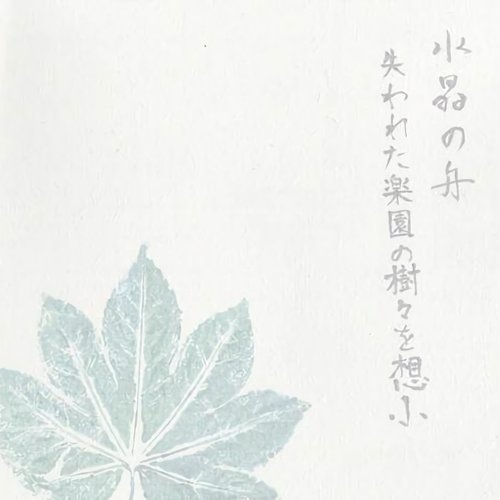 水晶の舟
失われた楽園の樹々を想ふ